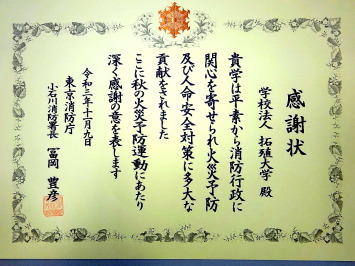 感謝状
学校法人 拓殖大学 殿
貴学は平素から消防行政に
関心を寄せられ火災予防
及び人命安全対策に多大な
貢献をされました
ここに秋の火災予防運動にあたり
深く感謝の意を表します
令和三年十一月九日
東京消防庁
小石川消防署長 冨岡 豊彦